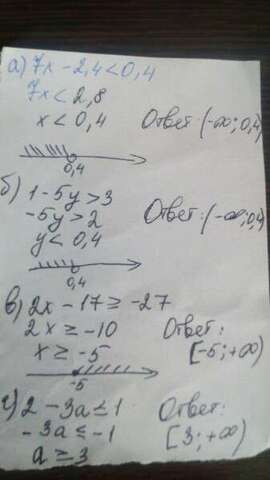 а) 7x - 2,4 < 0,4
7x < 2,8
x < 0,4 Ответ: (-∞; 0,4)
0,4
б) 1 - 5y > 3
-5y > 2 Ответ: (-∞; 0,4)
y < 0,4
0,4
в) 2x - 17 ≥ -27
2x ≥ -10 Ответ:
x ≥ -5 [-5; +∞)
-5
г) 2 - 3a ≤ 1 Ответ:
-3a ≤ -1 [3; +∞)
a ≥ 3